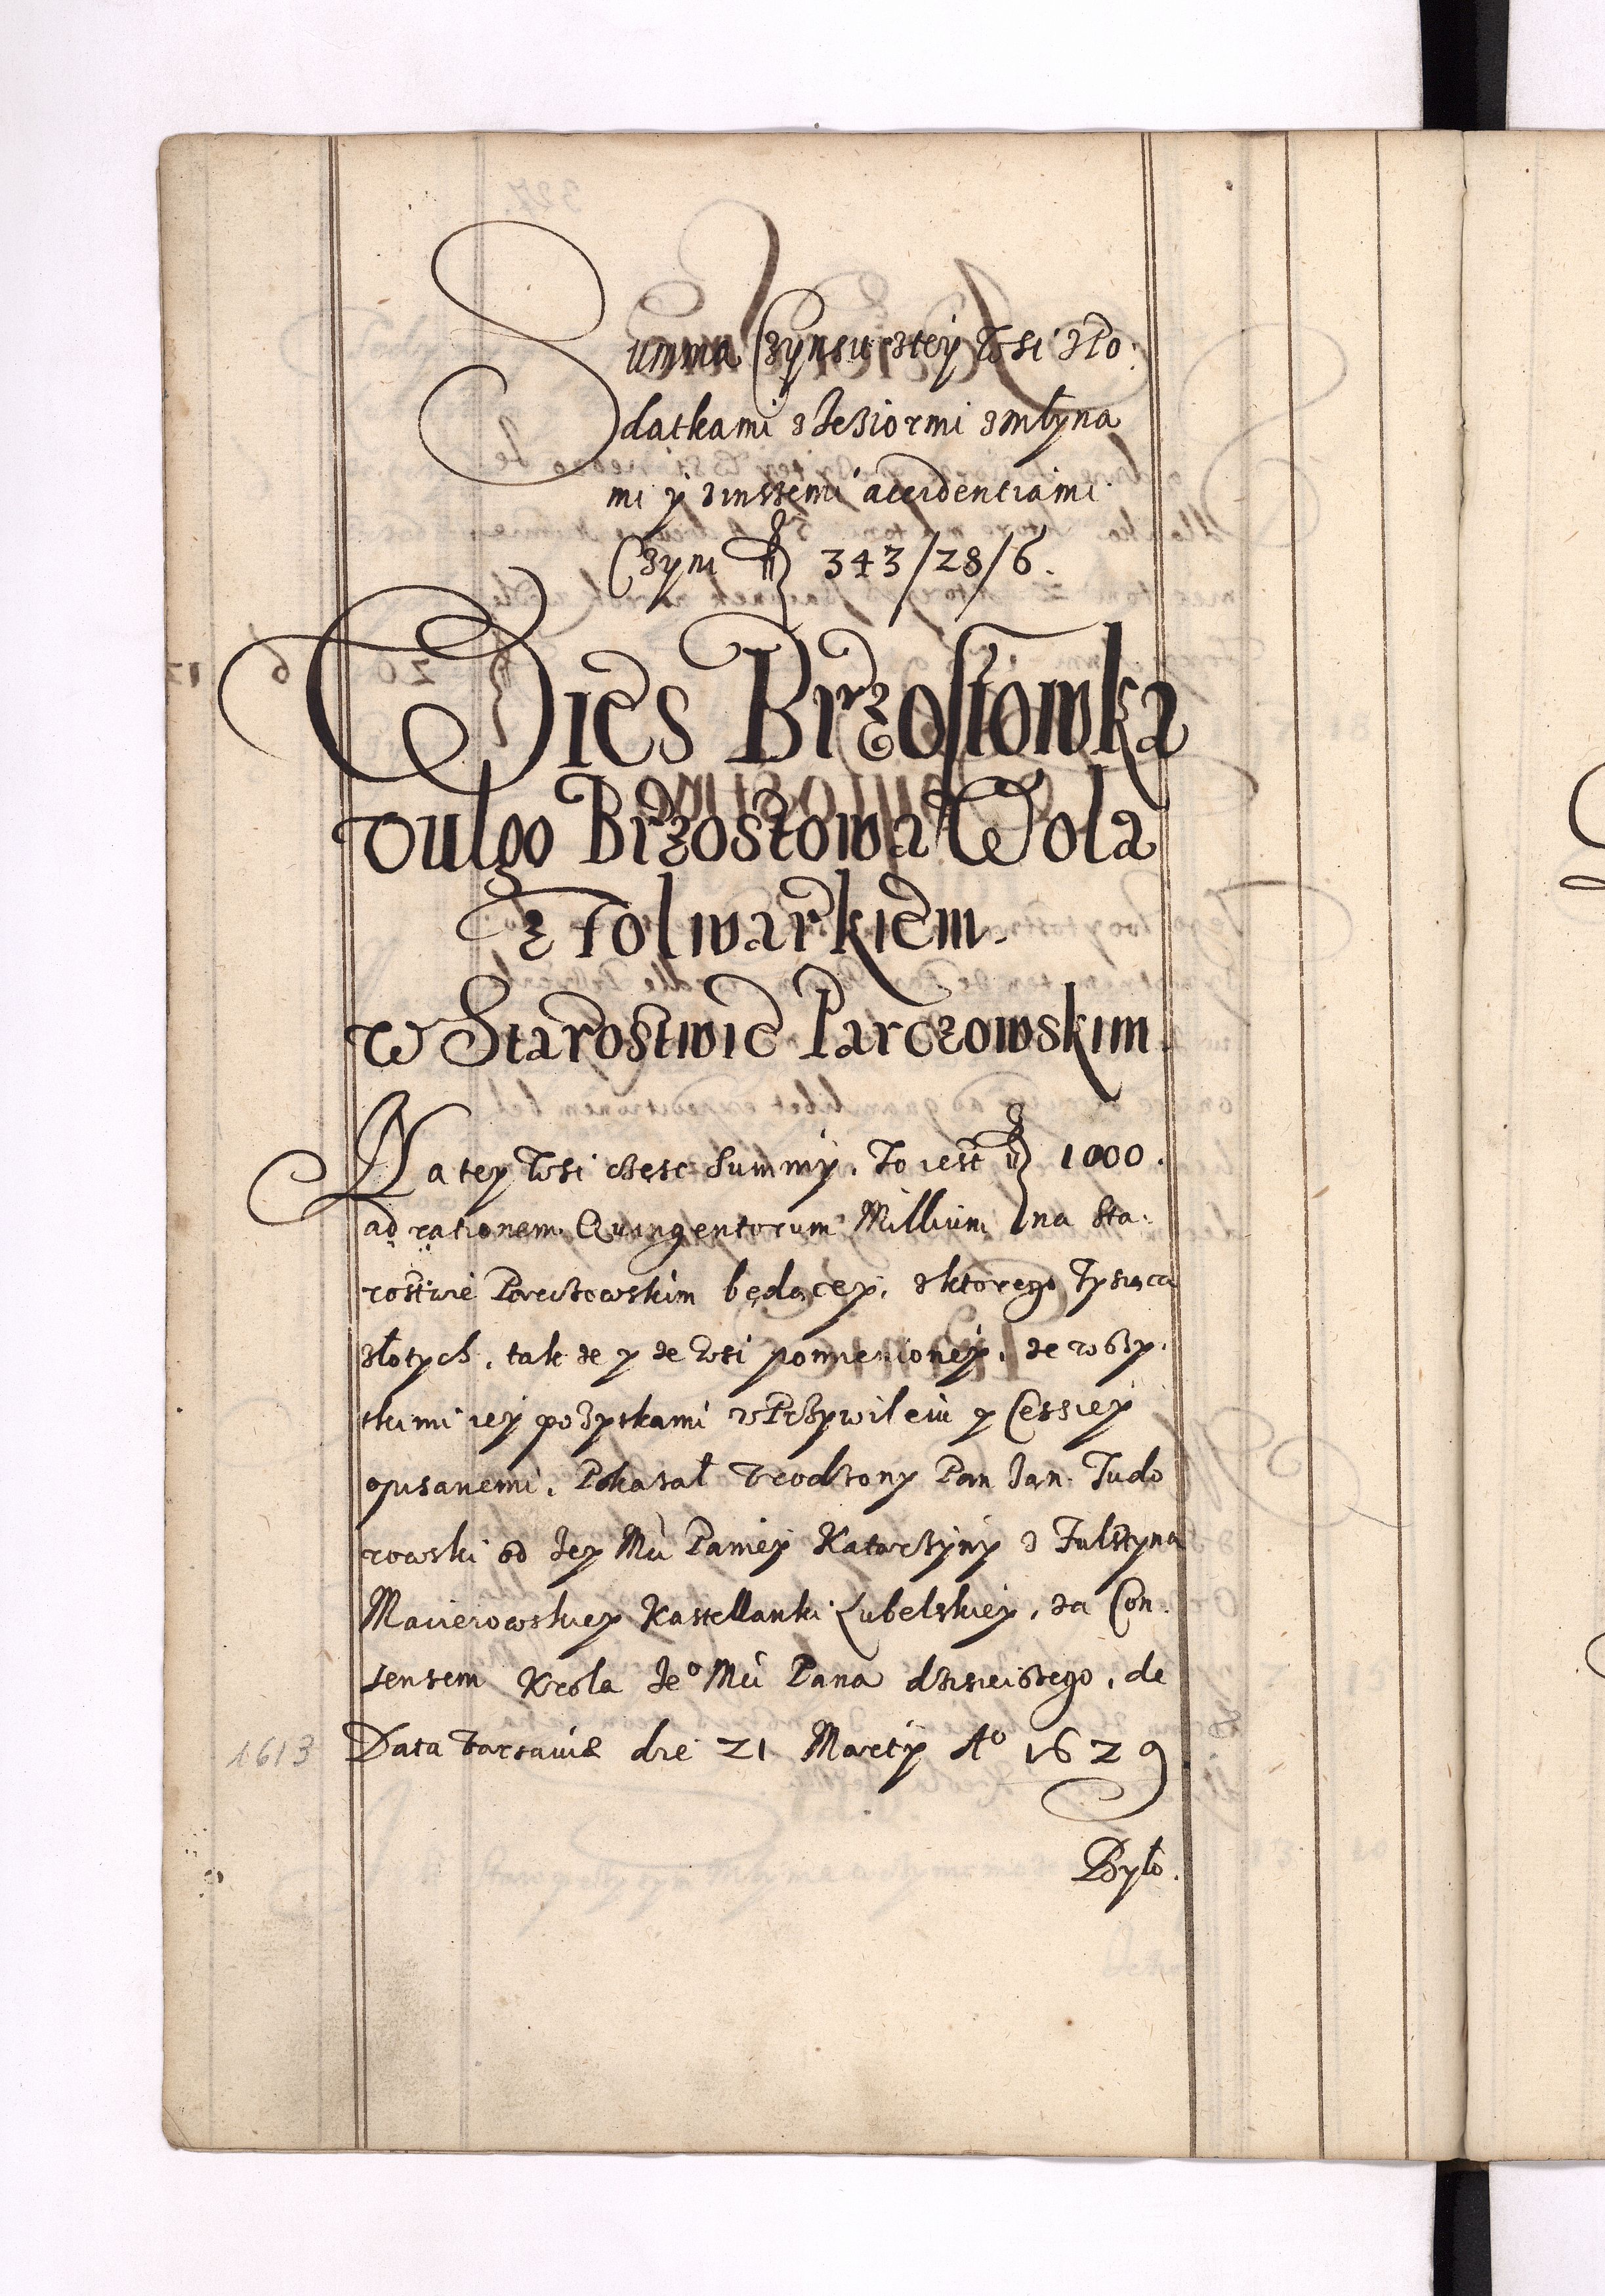 Summa Czynszu z tey Wsi z Po:
datkami z Jeziormi z młyna
mi y z inszemi accidentiami
Czyni fl 343/28/6.
Wies Brzostowka
vulgo Brzostowa Wola
z Folwarkiem.
w Starostwie Parczowskim.
Na tey Wsi częsc Summy, To iest fl 1000.
ad rationem Quingentorum Millium na Sta:
rostwie Parczowskim będącey, z ktorego Tysiąca
złotych, tak ze y ze Wsi pomienioney, ze wszy:
tkimi iey pożytkami w Przywileiu y Cessiey
opisanemi, Pokazał Vrodzony Pan Jan Tudo
rowski od Jey Mci Paniey Katarzyny z Fulsztyna
Macieiowskiey Kasztellanki Lubelskiey, za Con:
sensem Krola Je° Mci Pana dzisieiszego, de
1613 Data Varsaviæ die 21 Martÿ A° 1629
Było.